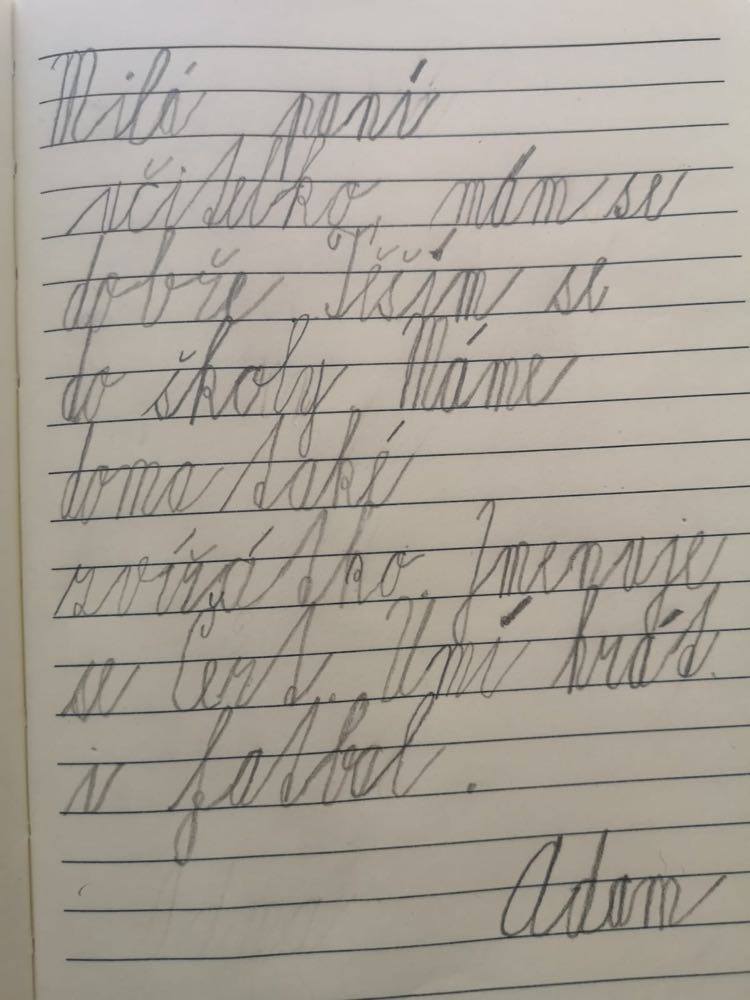 Milá paní
učitelko, mám se
dobře. Těším se
do školy. Máme
doma také
zvířátko. Jmenuje
se Čert. Umí hrát
i fotbal.
Adam